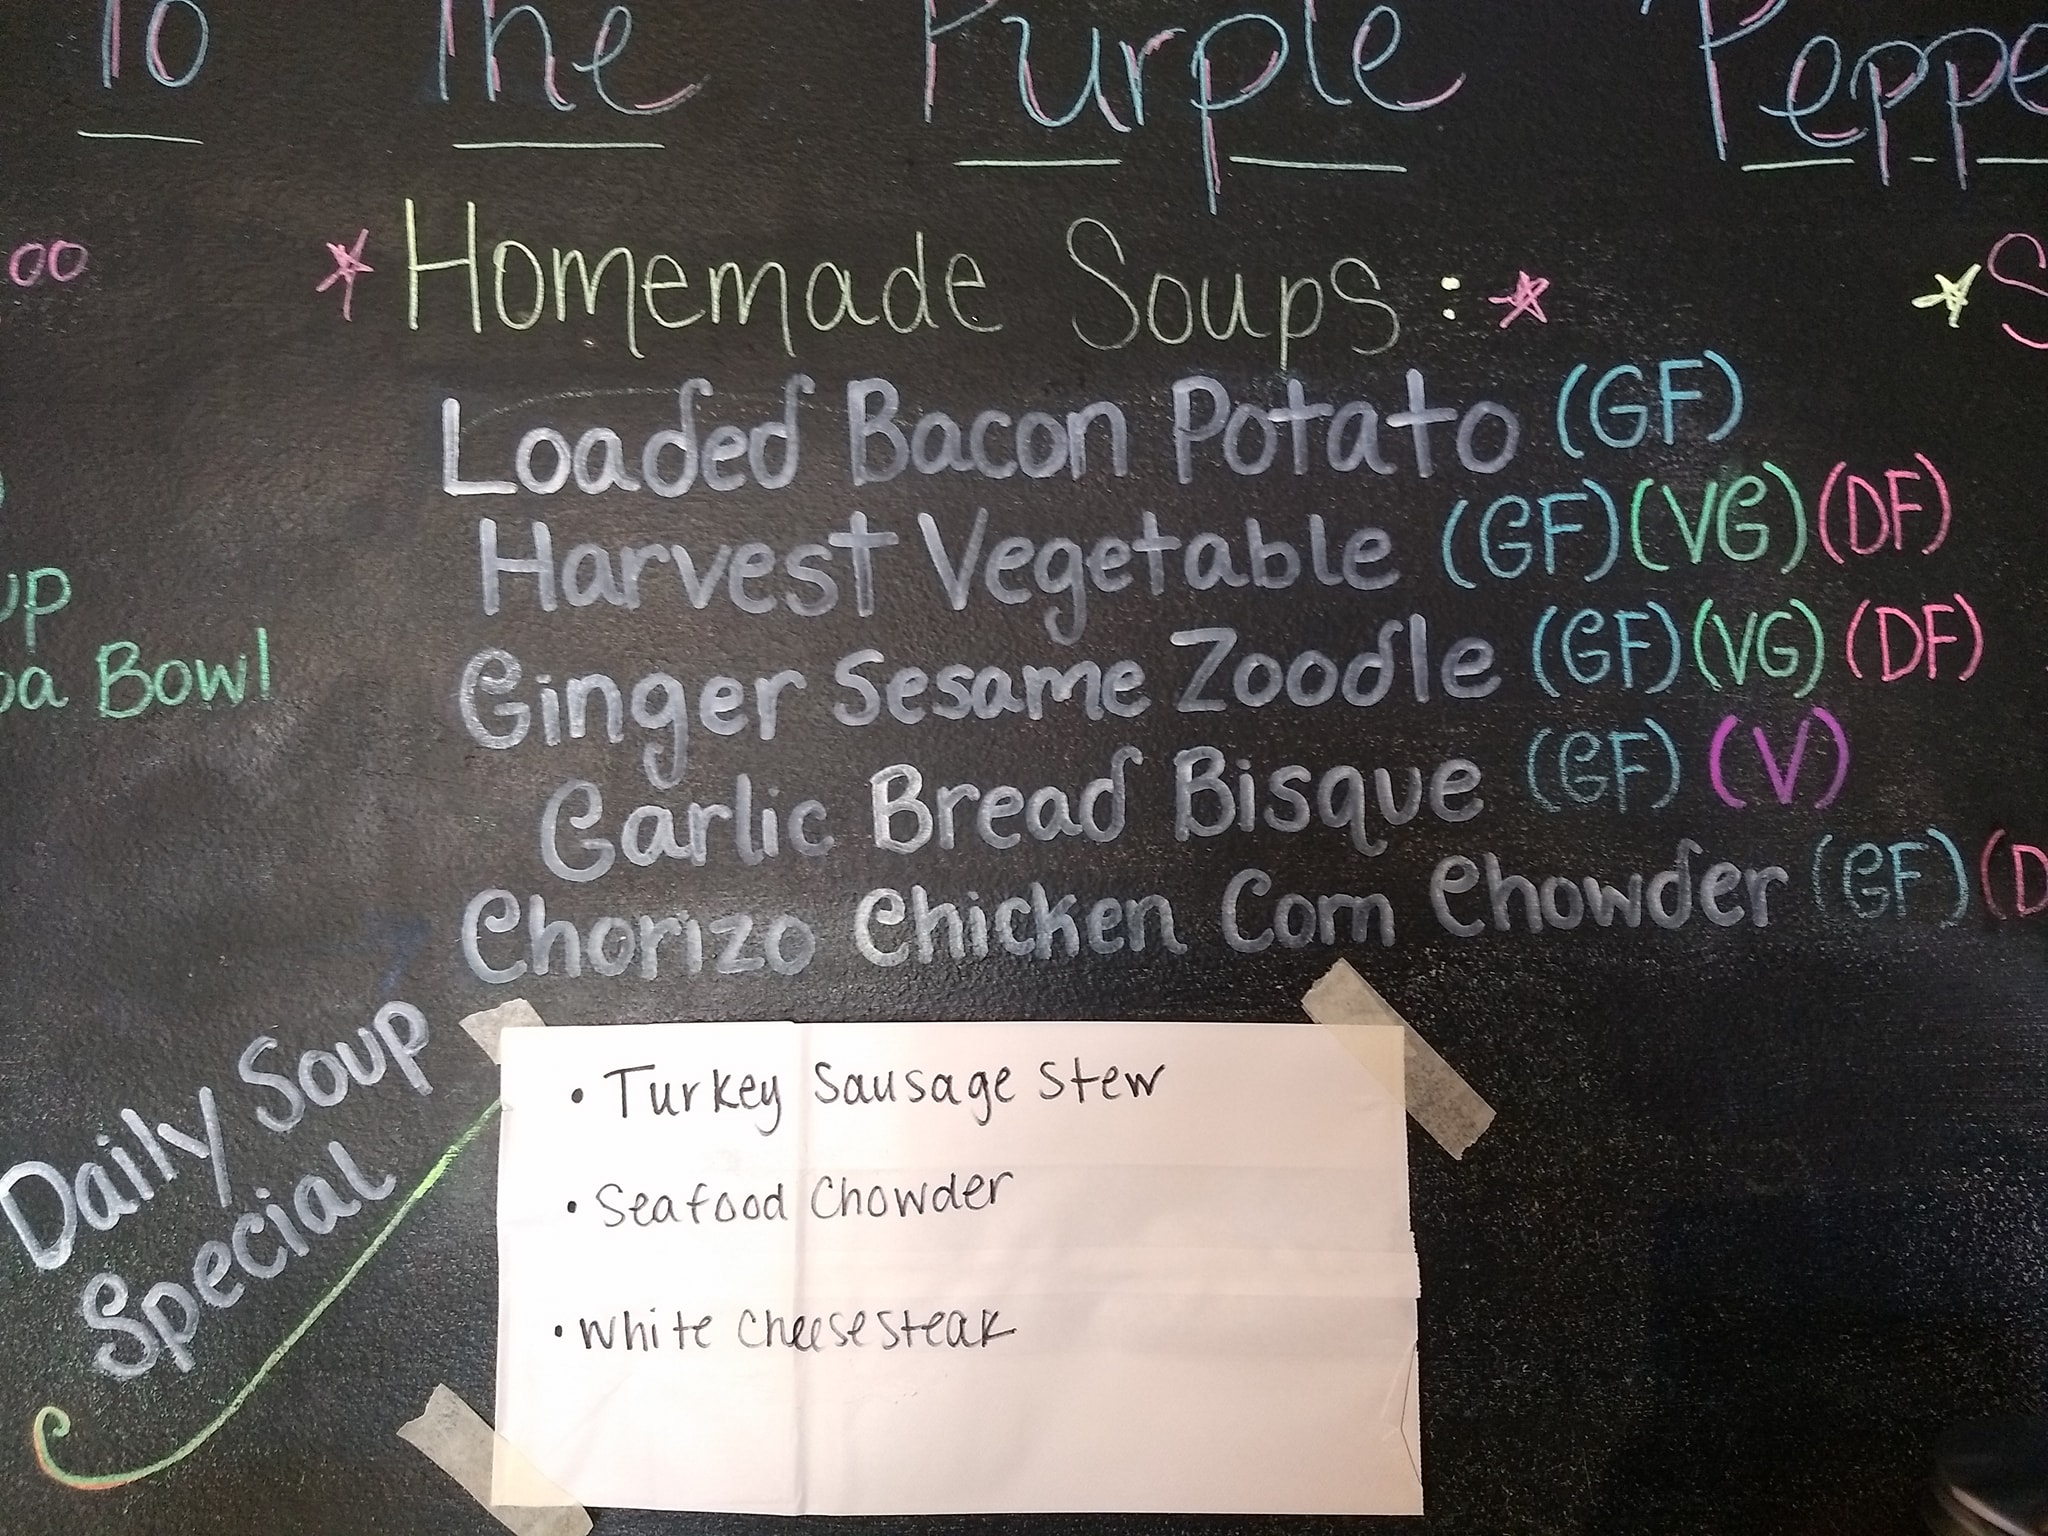 To The Purple Peppe
00
* Homemade Soups: *
Loaded Bacon Potato (GF)
Harvest Vegetable (GF) (VG) (DF)
Ginger Sesame Zoodle (GF) (VG) (DF)
Garlic Bread Bisque (GF) (V)
Chorizo Chicken Corn Chowder (GF) (D
up
Bowl
Daily Soup
Special
• Turkey Sausage Stew
• Seafood Chowder
• White Cheesesteak